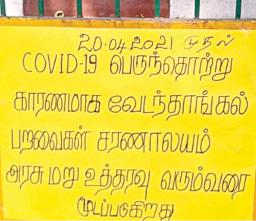 20.04.2021 முதல்
COVID-19 பெருந்தொற்று
காரணமாக வேடந்தாங்கல்
பறவைகள் சரணாலயம்
அரசு மறு உத்தரவு வரும்வரை
மூடப்படுகிறது